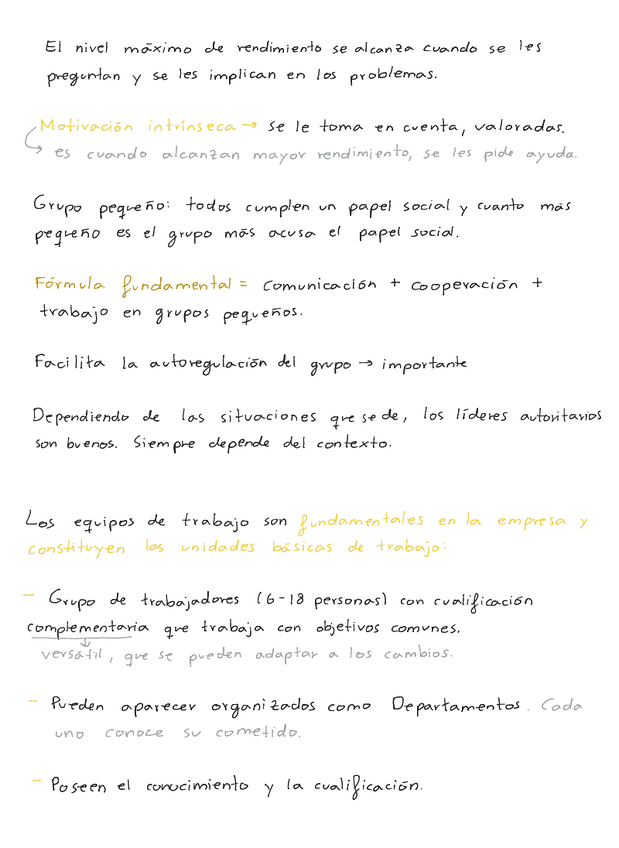 El nivel máximo de rendimiento se alcanza cuando se les
preguntan y se les implican en los problemas.
Motivación intrínseca → se le toma en cuenta, valoradas.
es cuando alcanzan mayor rendimiento, se les pide ayuda.
Grupo pequeño: todos cumplen un papel social y cuanto más
pequeño es el grupo más acusa el papel social.
Fórmula fundamental = comunicación + cooperación +
trabajo en grupos pequeños.
Facilita la autoregulación del grupo → importante
Dependiendo de las situaciones que se de, los líderes autoritarios
son buenos. Siempre depende del contexto.
Los equipos de trabajo son fundamentales en la empresa y
constituyen las unidades básicas de trabajo:
- Grupo de trabajadores (6-18 personas) con cualificación
complementaria que trabaja con objetivos comunes.
versátil, que se pueden adaptar a los cambios.
- Pueden aparecer organizados como Departamentos. Cada
uno conoce su cometido.
- Poseen el conocimiento y la cualificación.